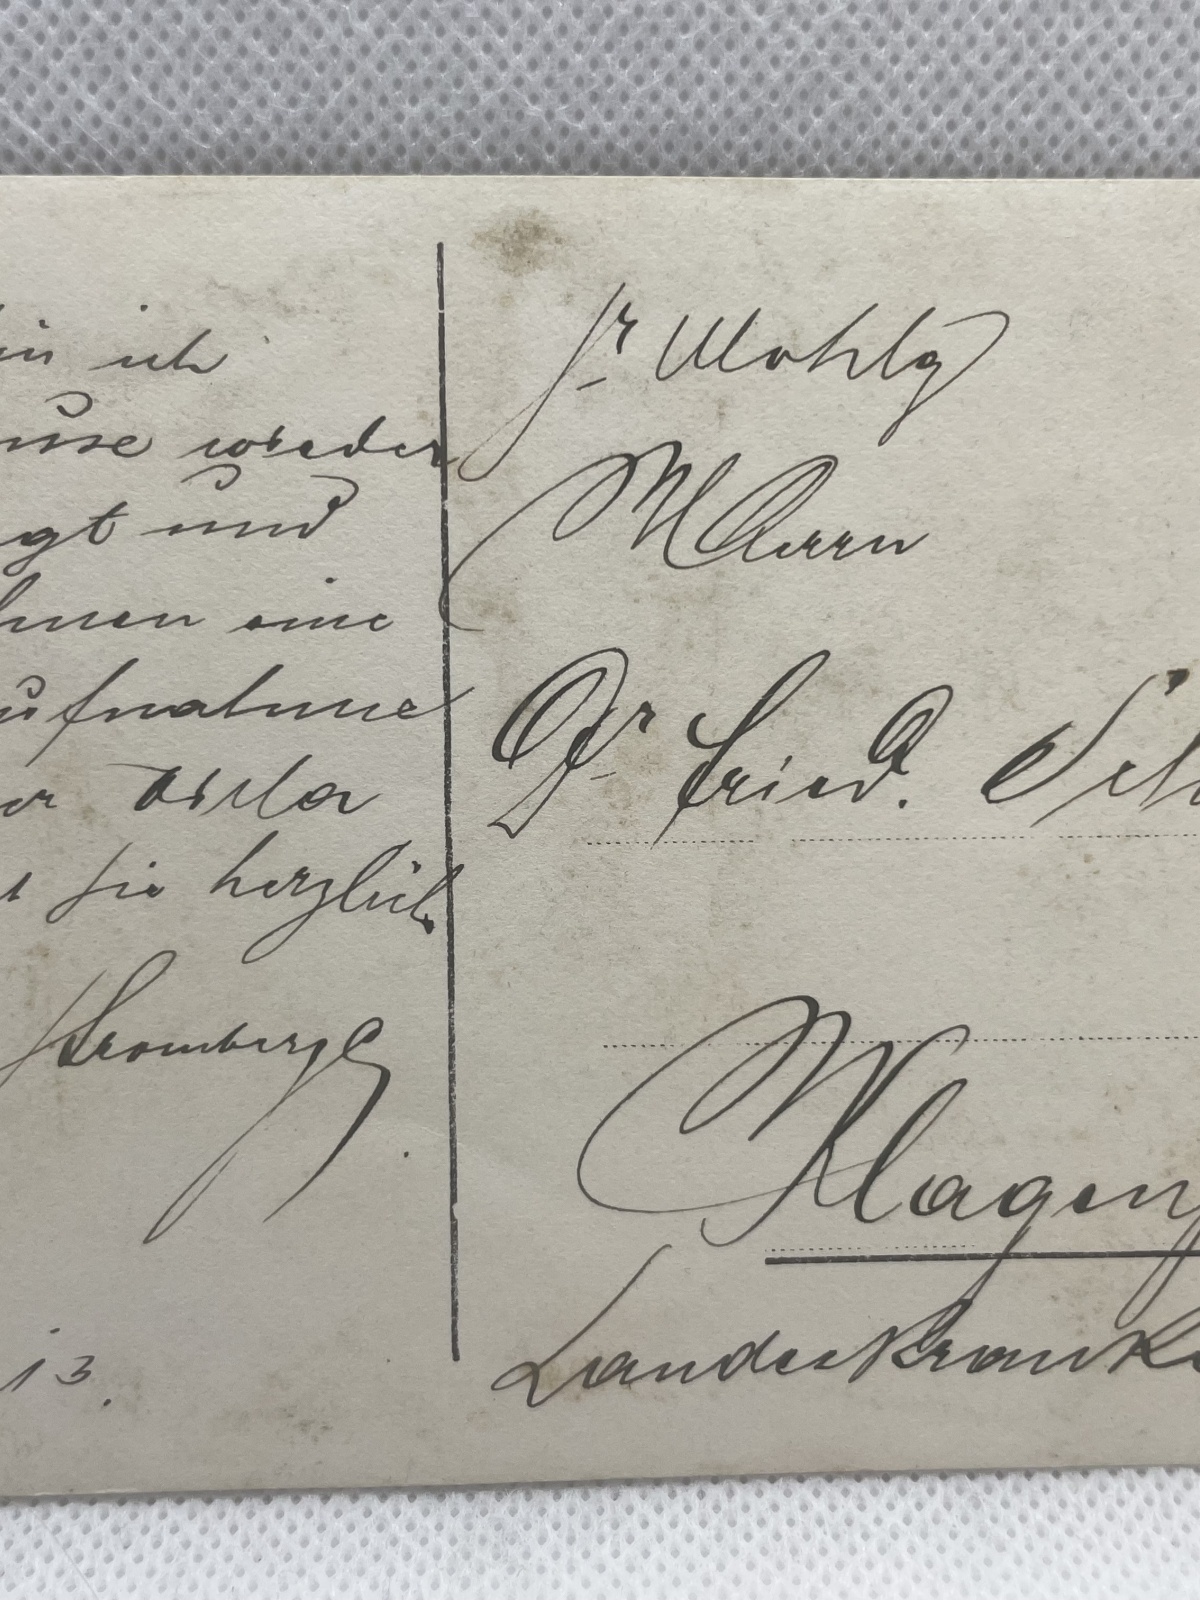 in ich
use wieder
gt und
hnen eine
ufnahme
er
t sie herzlich
Stromberger
13.
Sr Wohlg
Herrn
Dr Fried.
Klagenf
Landeskranke